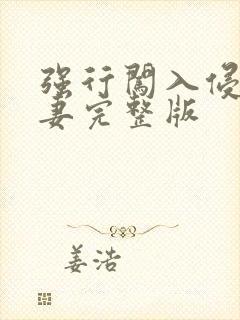 强行闯入侵
妻完整版
姜浩